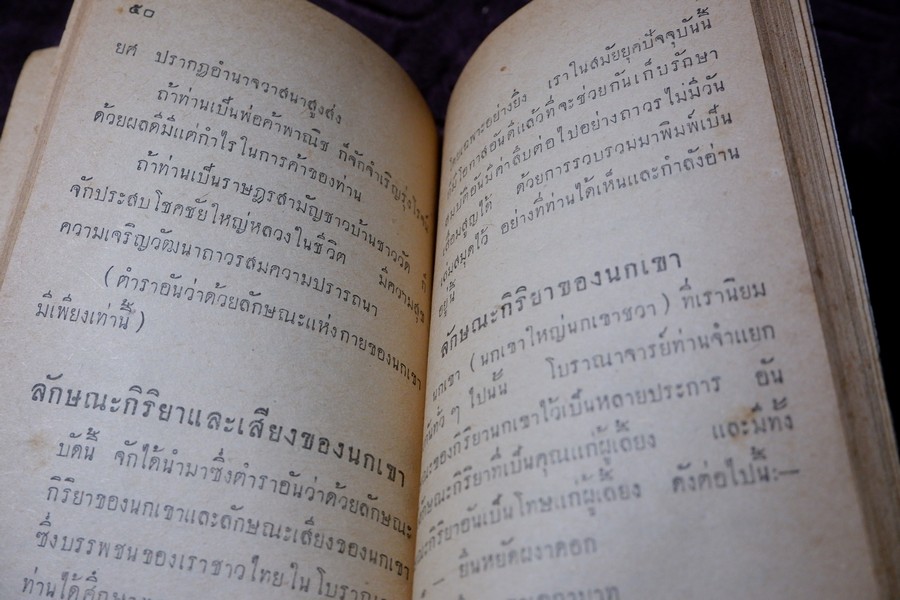 ๕๐
ยศ ปรากฏอำนาจวาสนาสูงส่ง
ถ้าท่านเป็นพ่อค้าพาณิช ก็จักจำเริญรุ่งโรจน์
ด้วยผลดีมีแต่กำไรในการค้าของท่าน
ถ้าท่านเป็นราษฎรสามัญชาวบ้านชาววัด ก็
จักประสบโชคชัยใหญ่หลวงในชีวิต มีความสุข
ความเจริญวัฒนาถาวรสมความปรารถนา
(ตำราอันว่าด้วยลักษณะแห่งกายของนกเขา
มีเพียงเท่านี้)
ลักษณะกิริยาและเสียงของนกเขา
บัดนี้ จักได้นำมาซึ่งตำราอันว่าด้วยลักษณะ
กิริยาของนกเขาและลักษณะเสียงของนกเขา
ซึ่งบรรพชนของเราชาวไทยในโบราณ
ท่านได้ศึกษา
โดยเฉพาะอย่างยิ่ง เราในสมัยยุคปัจจุบันนี้
ก็มีโอกาสอันดีแล้วที่จะช่วยกันเก็บรักษา
สมบัติอันมีค่าสืบต่อไปอย่างถาวรไม่มีวัน
เสื่อมสูญได้ ด้วยการรวบรวมมาพิมพ์เป็น
เล่มสมุดไว้ อย่างที่ท่านได้เห็นและกำลังอ่าน
อยู่นี้
ลักษณะกิริยาของนกเขา
นกเขา (นกเขาใหญ่นกเขาชวา) ที่เรานิยม
กันทั่ว ๆ ไปนั้น โบราณาจารย์ท่านจำแยก
ณะของกิริยานกเขาไว้เป็นหลายประการ อัน
ลักษณะกิริยาที่เป็นคุณแก่ผู้เลี้ยง และมีทั้ง
ณะกิริยาอันเป็นโทษแก่ผู้เลี้ยง ดังต่อไปนี้:—
— ยืนหยัดผงาดอก